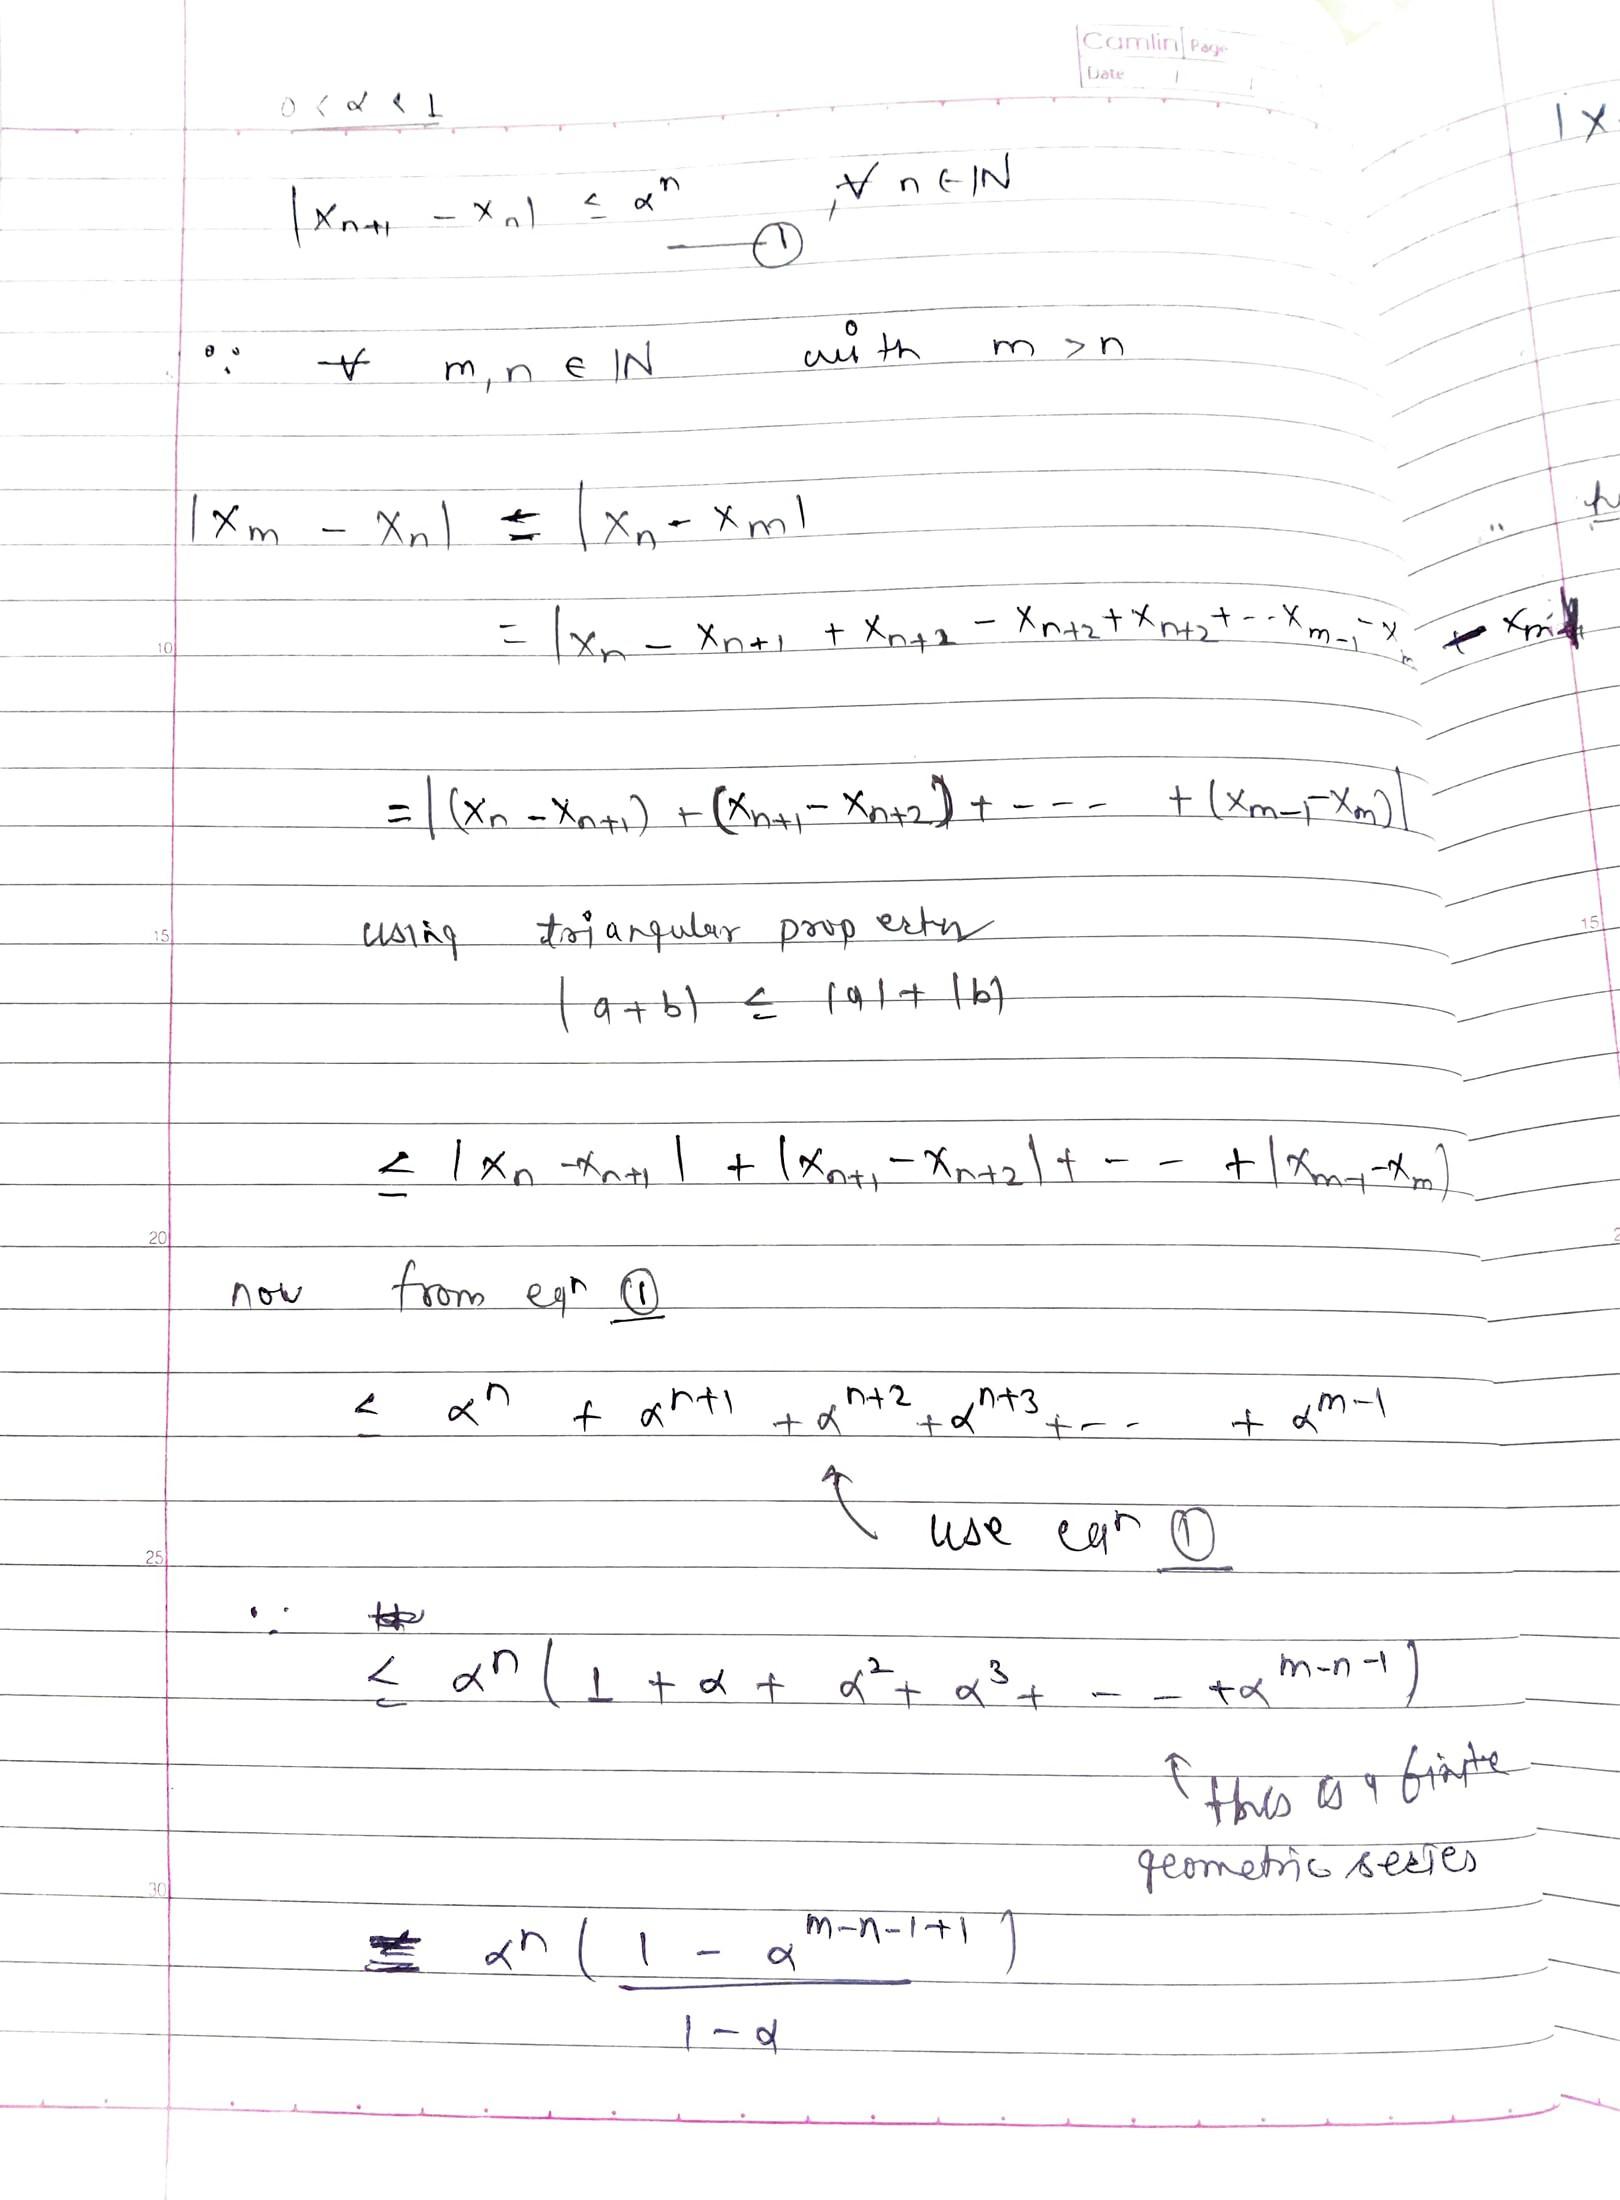 Camlin Page
Date / /
0 < α < 1
|x_{n+1} - x_n| ≤ α^n , ∀ n ∈ ℕ
—— ①
∵ ∀ m, n ∈ ℕ with m > n
|x_m - x_n| = |x_n - x_m|
= |x_n - x_{n+1} + x_{n+1} - x_{n+2} + x_{n+2} + -- x_{m-1} - x_m
= |(x_n - x_{n+1}) + (x_{n+1} - x_{n+2}) + - - - - + (x_{m-1} - x_m)|
10
using triangular property
15
|a + b| ≤ |a| + |b|
≤ |x_n - x_{n+1}| + |x_{n+1} - x_{n+2}| + - - + |x_{m-1} - x_m|
20
now from eqn ①
≤ α^n + α^{n+1} + α^{n+2} + α^{n+3} + - - + α^{m-1}
↑ use eqn ①
25
∵
≤ α^n (1 + α + α^2 + α^3 + - - + α^{m-n-1})
↑ this is a finite
geometric series
30
= α^n (1 - α^{m-n-1+1})
1 - α
|x
15